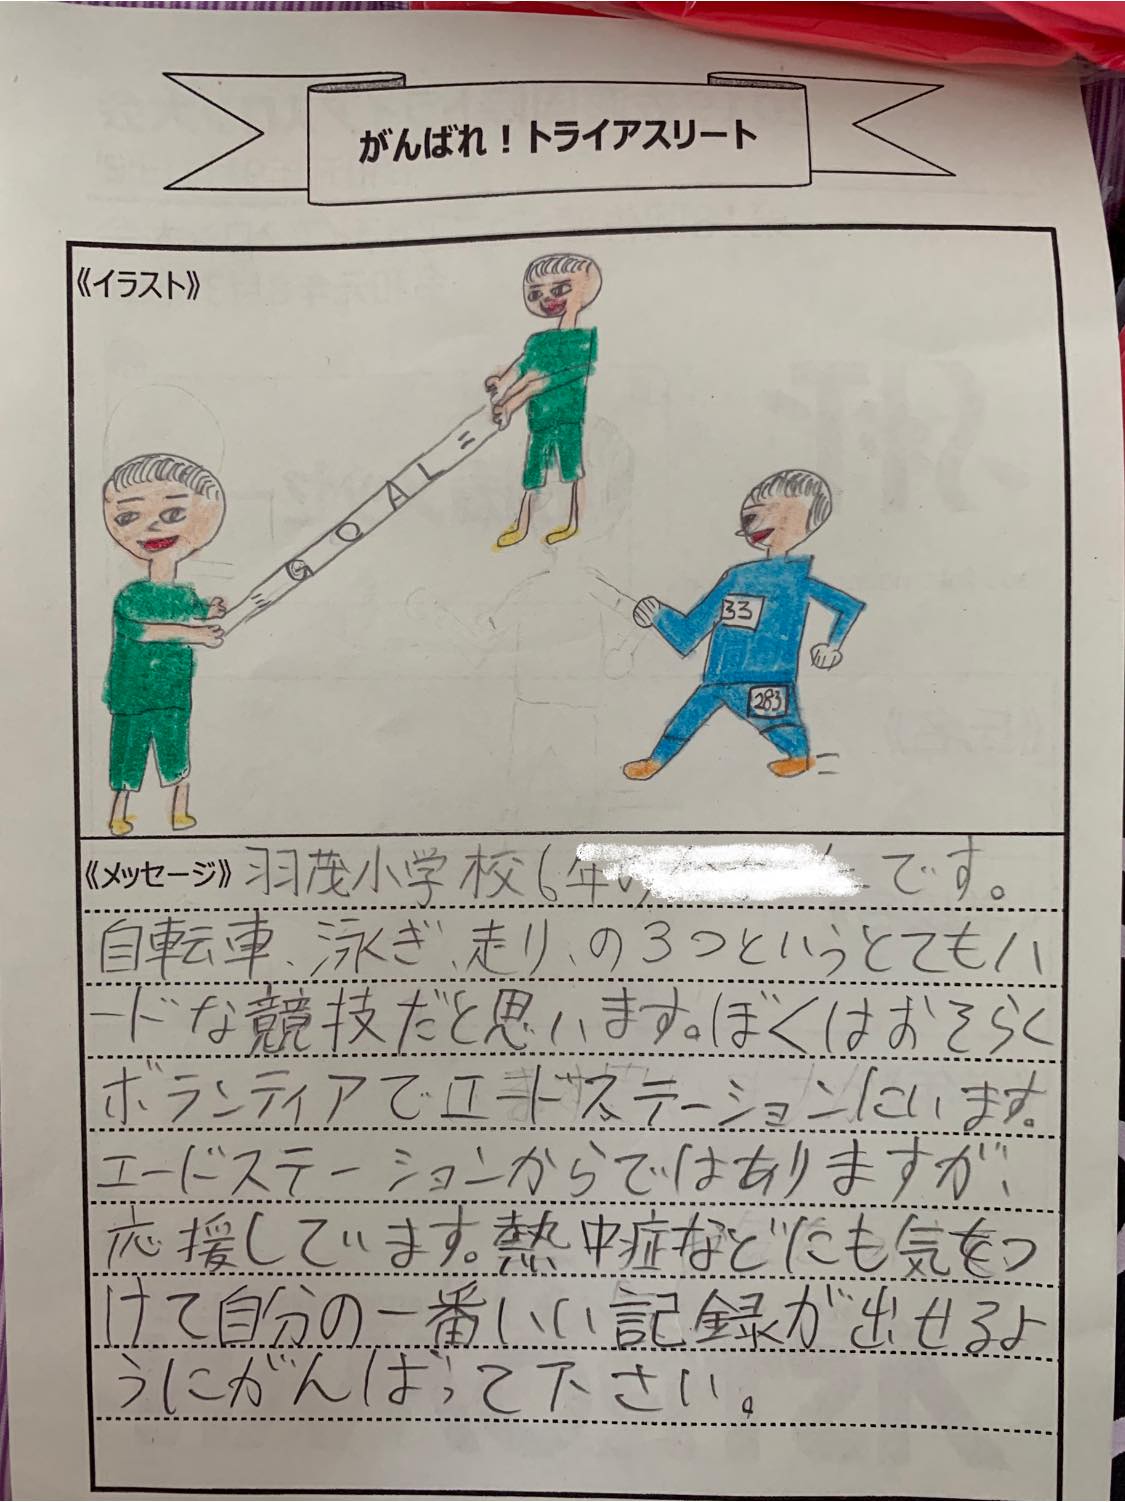 がんばれ！トライアスリート
《イラスト》
=GOAL=
33
283
《メッセージ》羽茂小学校6年の です。
自転車、泳ぎ、走り、の3つというとてもハ
ードな競技だと思います。ぼくはおそらく
ボランティアでエードステーションにいます。
エードステーションからではありますが、
応援しています。熱中症などにも気をつ
けて自分の一番いい記録が出せるよ
うにがんばって下さい。